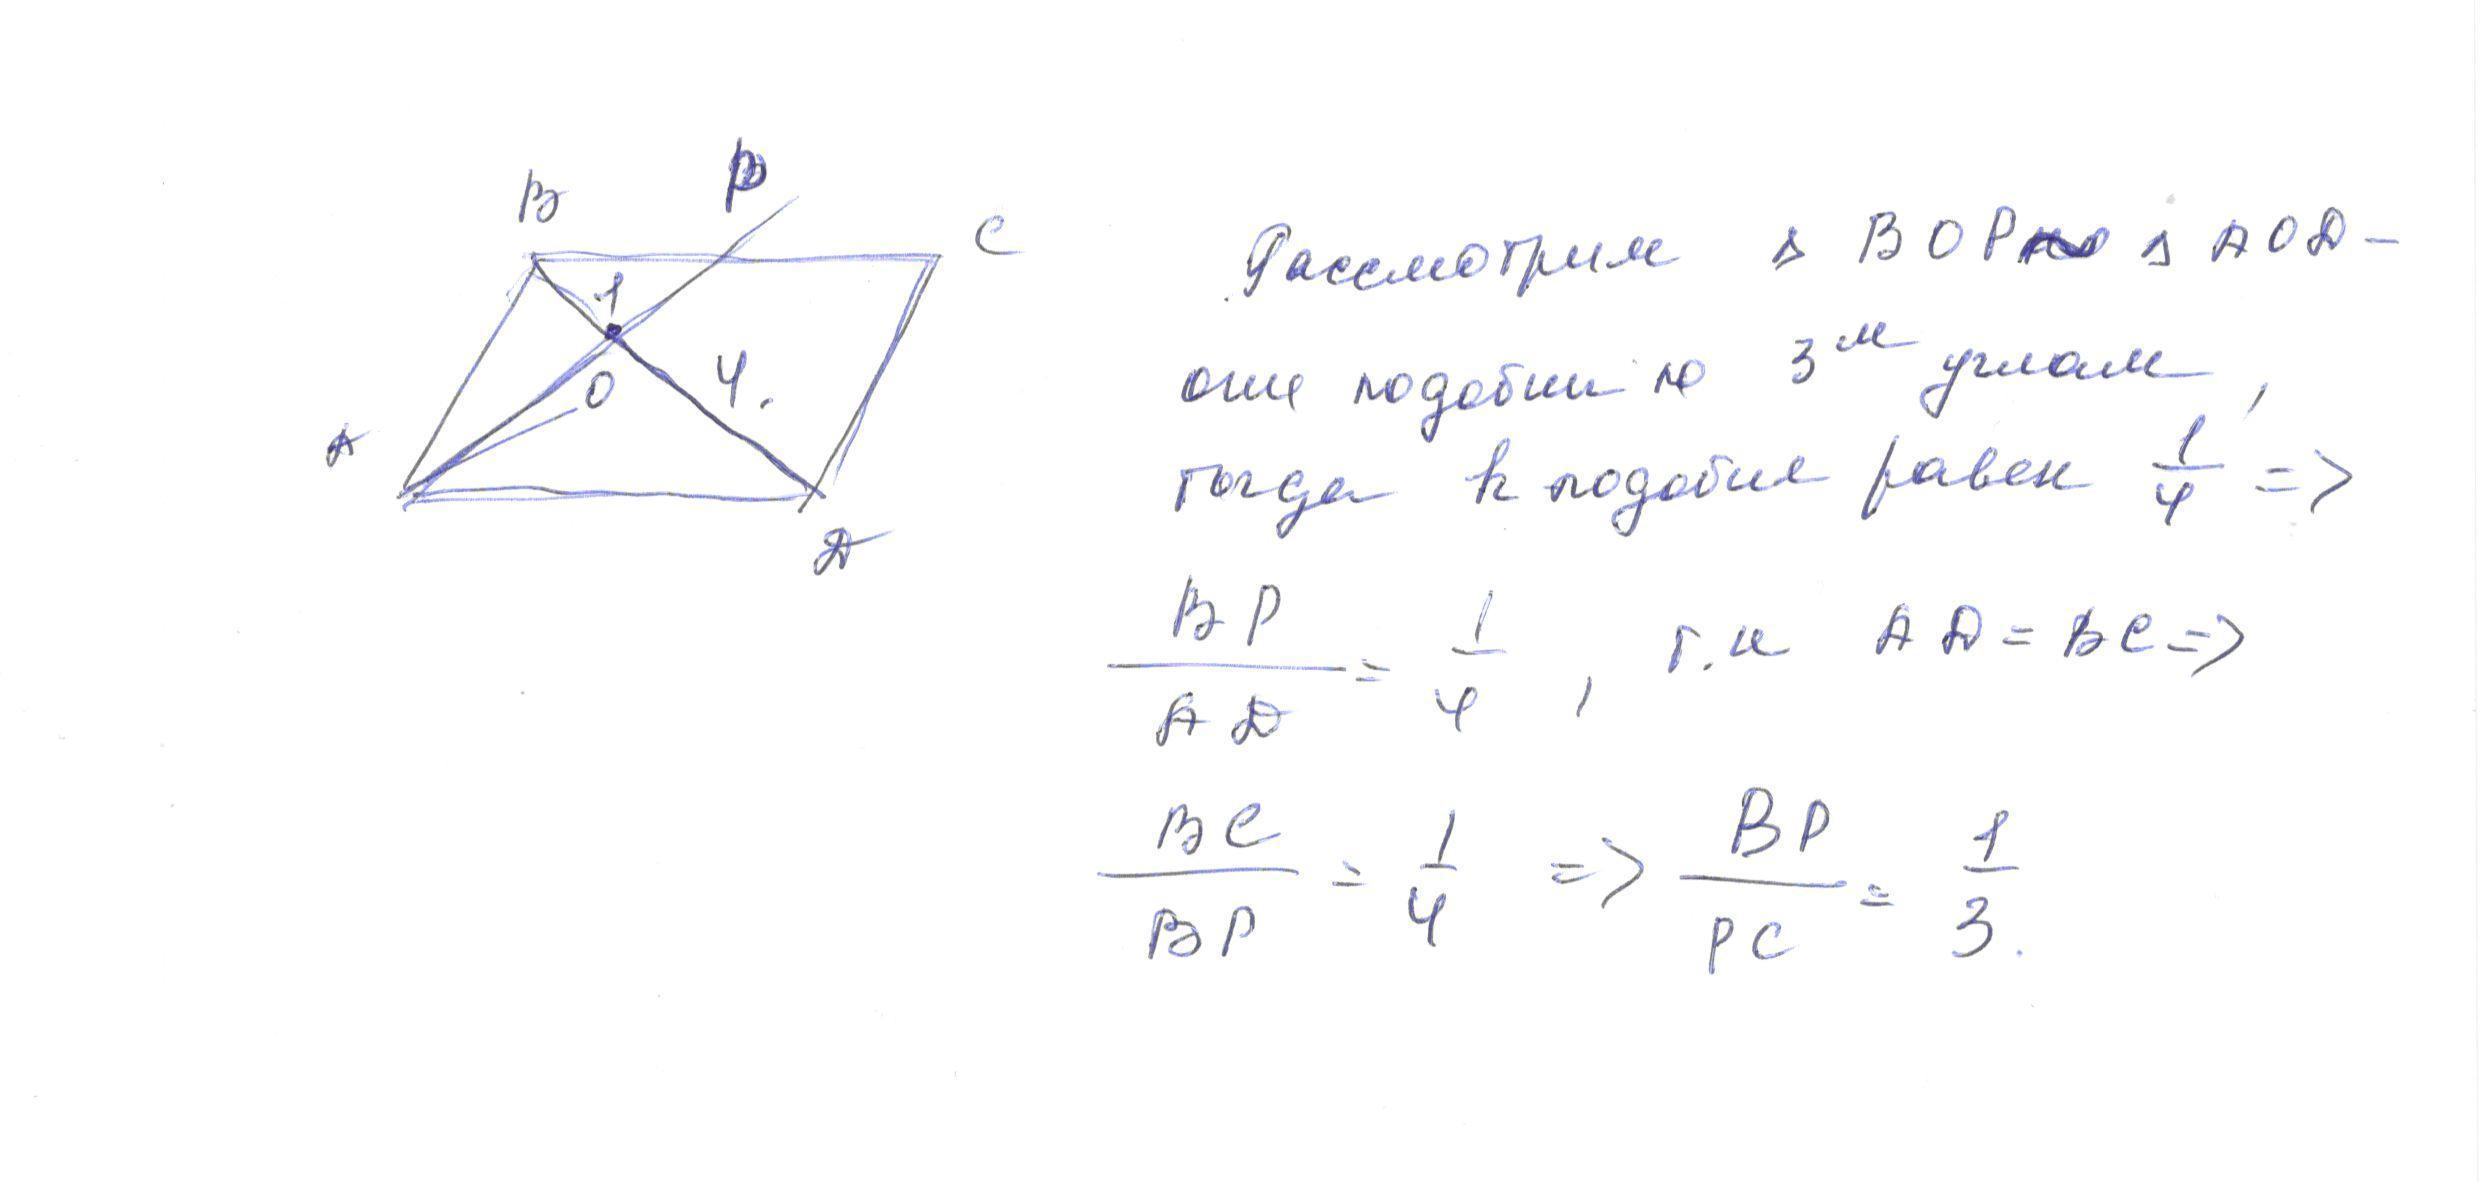 B
P
C
1
O
4.
A
D
Рассмотрим Δ BOP Δ AOD –
они подобны по 3м углам,
тогда k подобия равен 1/4 =>
BP/AD = 1/4, т.к AD = BC =>
BC/BP = 1/4 => BP/PC = 1/3.